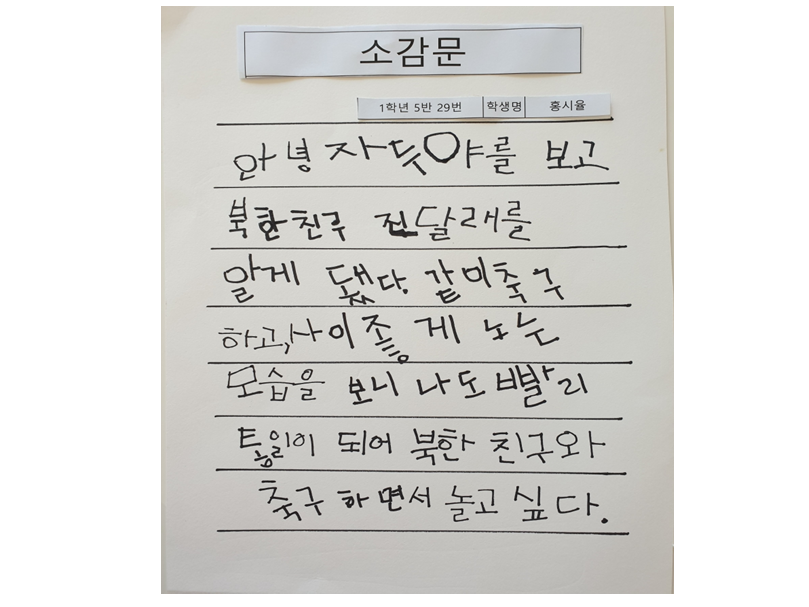 소감문
1학년 5반 29번 학생명 홍시율
안녕 자두야를 보고
북한친구 진달래를
알게 됐다. 같이축구
하고, 사이좋게 노는
모습을 보니 나도 빨리
통일이 되어 북한 친구와
축구 하면서 놀고 싶다.